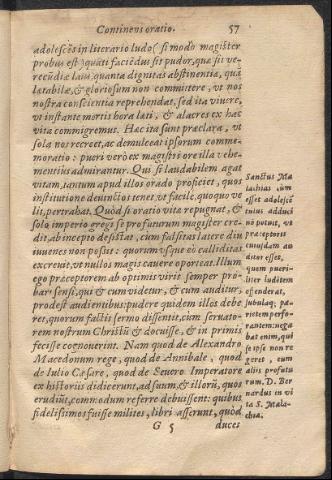 Continens oratio. 57
adolescēs in literario ludo (si modò magister
probus est) quāti faciēdus sit pudor, quæ sit ve-
recūdiæ laus, quanta dignitas abstinentia, quā
latabilæ, & gloriosum non committere, vt nos
nostra conscientia reprehendat, sed ita viuere,
vt instante mortis hora lati, & alacres ex hac
vita commigremus. Hæc ita sunt præclara, vt
sola nos recreet, ac demulceat ipsorum comme-
moratio: pueri verò ex magistri ore illa vehe-
mentiùs admirantur. Qui si laudabilem agat
vitam, tantum apud illos orado proficiet, quos
institutione deuinctos tenet, vt facilè, quoquo ve
lit, pertrahat. Quòd si oratio vita repugnat, &
solo imperio gregi se profuturum magister cre-
dit, ab incepto desistat, cum falsitas latere diu
iuuenes non possit: quorum vsque eò calliditas
excreuit, vt nullos magis cauere oporteat. Illum
ego præceptorem ab optimis viris semper pro-
bari sensi, qui & cum videtur, & cum auditur,
prodest audientibus: pudere quidem illos debe
ret, quorum factis sermo dissentit, cùm seruato-
rem nostrum Christū & docuisse, & in primis
fecisse cognouerint. Nam quod de Alexandro
Macedonum rege, quod de Annibale, quod
de Iulio Cæsare, quod de Seuero Imperatore
ex historiis didicerunt, ad suum, & illorū, quos
erudiūt, commodum referre debuissent: quibus
fidelissimos fuisse milites, libri asserunt, quòd
G 5 duces
Sanctus Ma
lachias, cùm
esset adolescē
tulus adduci
nō potuit, vt
præceptoris
cuiusdam au
ditor esset,
quem pueri-
liter luditem
offenderat,
subulaq; pa-
rietem perfo-
rantem: nega
bat enim, qui
se ipse non re
geret, eum
aliis profutu
rum, D. Ber
nardus in vi
ta S. Mala-
chia.